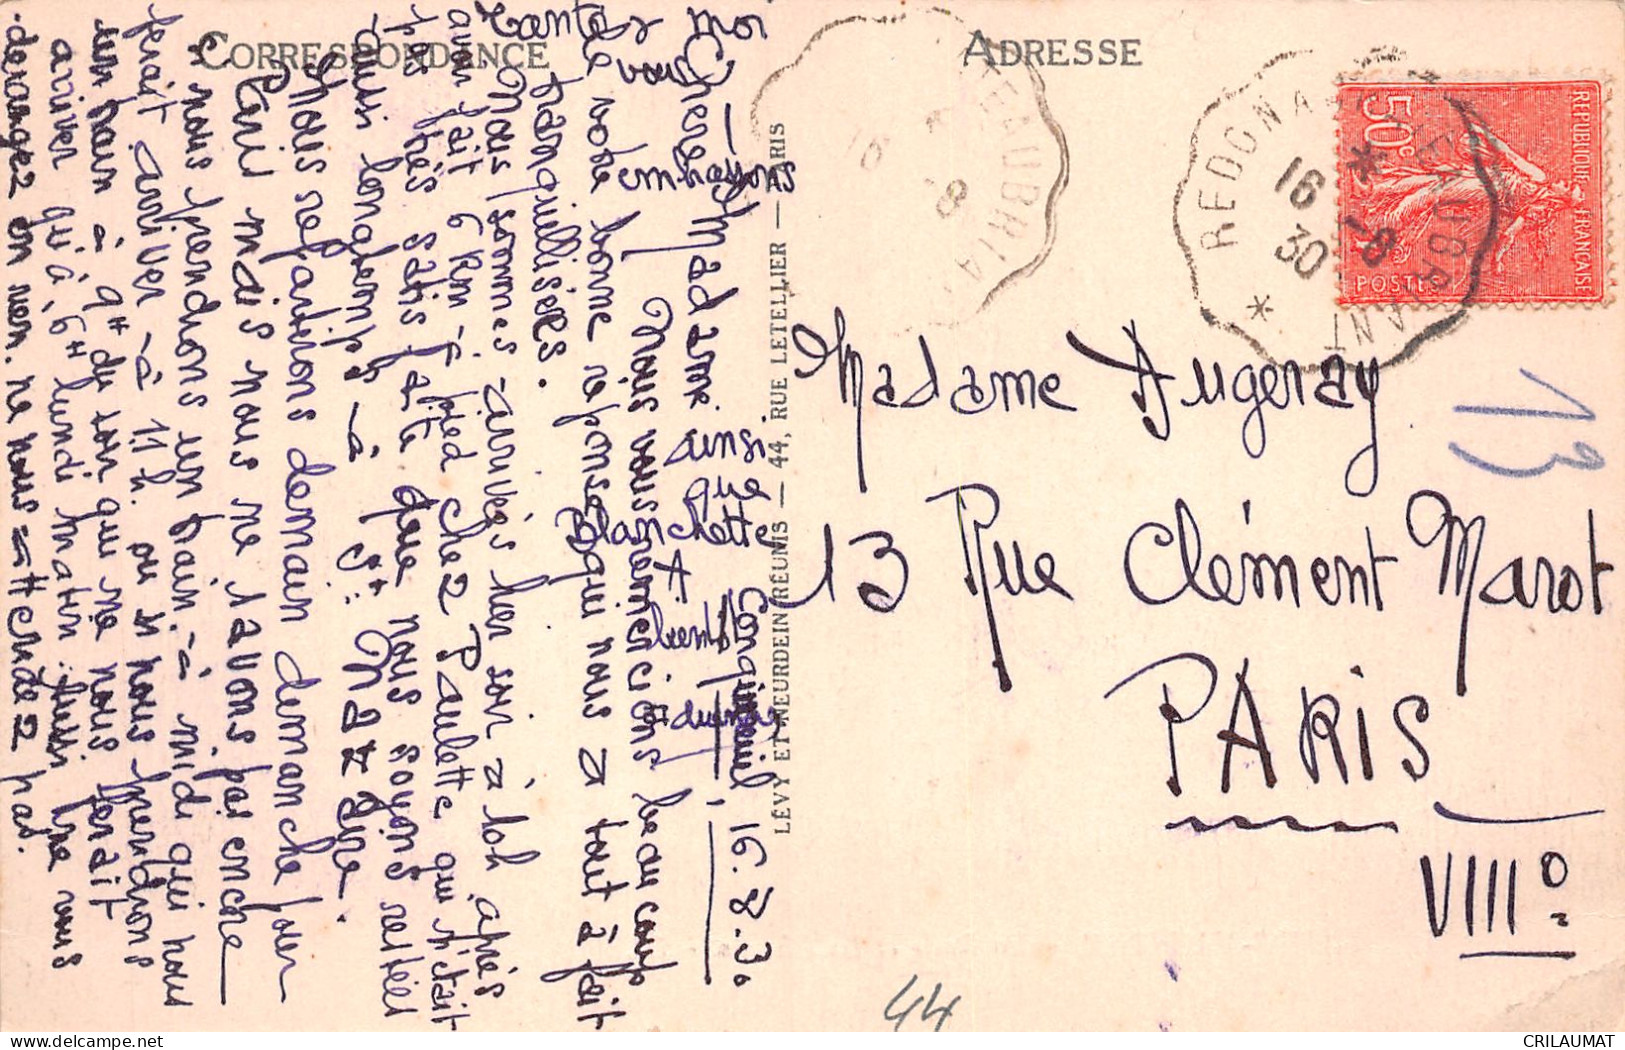 CORRESPONDANCE
ADRESSE
REPUBLIQUE FRANÇAISE
50c
POSTES
REDON A CHATEAUBRIANT
16 -8
30
LEVY ET NEURDEIN RÉUNIS — 44, RUE LETELLIER — PARIS
Madame Augeray
13 Rue Clément Marot
PARIS
VIIIº
13
44
16.8.30
Chère Madame
Nous vous remercions beaucoup
de votre bonne réponse qui nous a tout à fait
tranquillisées.
Nous sommes arrivés hier soir à 10h après
avoir fait 6 km à pied chez Paulette qui n'était
pas très satisfaite que nous soyons restées
aussi longtemps à St. Nazaire.
Nous repartirons demain dimanche pour
Paris mais nous ne savons pas encore
si nous prendrons un train à midi qui nous
ferait arriver à 11 h. ou si nous prendrons
un train à 9H du soir qui ne nous ferait
arriver qu'à 6H lundi matin. Aussi ne vous
dérangez en rien. ne nous attendez pas.
Tante & moi
vous embrassons
ainsi
que
Blanchette